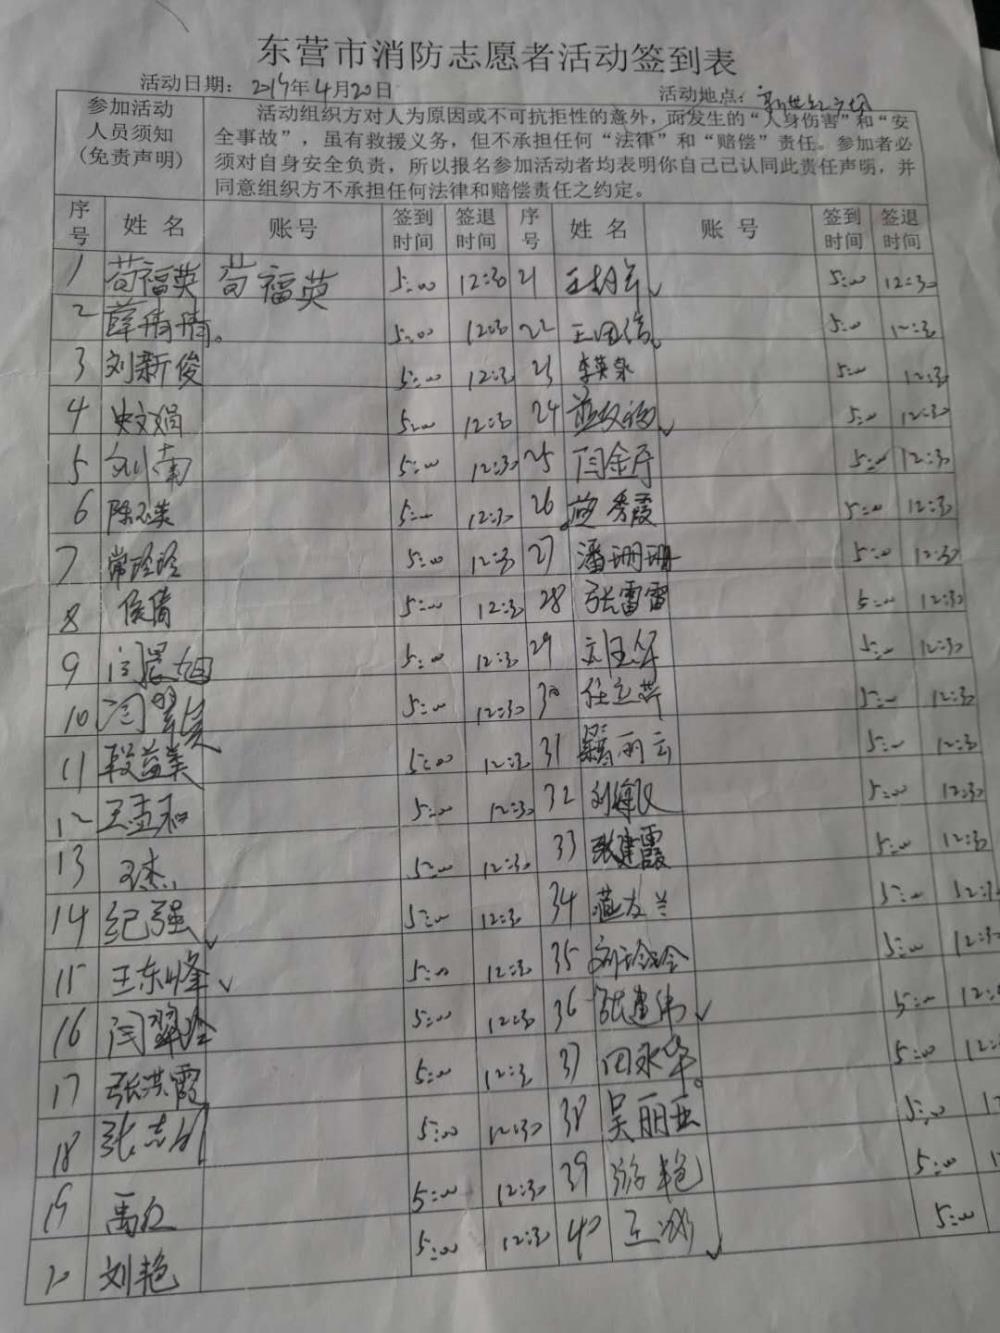 东营市消防志愿者活动签到表
活动日期: 2019年4月20日 活动地点:
参加活动人员须知(免责声明)
活动组织方对人为原因或不可抗拒性的意外,而发生的“人身伤害”和“安
全事故”,虽有救援义务,但不承担任何“法律”和“赔偿”责任。参加者必
须对自身安全负责,所以报名参加活动者均表明你自己己认同此责任声明,并
同意组织方不承担任何法律和赔偿责任之约定。
序号 姓名 账号 签到时间 签退时间 序号 姓名 账号 签到时间 签退时间
1 苟福英 苟福英 5:00 12:30 21 5:00 12:30
2 薛倩倩。 5:00 12:30 22 王国信 5:00 12:30
3 刘新俊 5:00 12:30 23 李英泉 5:00 12:30
4 史文娟 5:00 12:30 24 5:00 12:30
5 刘南 5:00 12:30 25 闫金厅 5:00 12:30
6 陈玉英 5:00 12:30 26 燕秀霞 5:00 12:30
7 常玲玲 5:00 12:30 27 潘珊珊 5:00 12:30
8 侯倩 5:00 12:30 28 张雷雷 5:00 12:30
9 5:00 12:30 29 刘玉华 5:00 12:30
10 5:00 12:30 30 任立芹 5:00 12:30
11 段益美 5:00 12:30 31 丽云 5:00 12:30
12 王孟和 5:00 12:30 32 刘 5:00 12:30
13 王杰 5:00 12:30 33 张建霞 5:00 12:30
14 纪强 5:00 12:30 34 友兰 5:00 12:30
15 王东峰 5:00 12:30 35 刘玲玲 5:00 12:30
16 闫翠玲 5:00 12:30 36 张建伟 5:00 12:
17 张洪霞 5:00 12:30 37 田永华。 5:00 12:
18 张志刚 5:00 12:30 38 吴丽亚 5:00
19 禹红 5:00 12:30 39 艳 5:00
20 刘艳 5:00 12:30 40 王 5:00